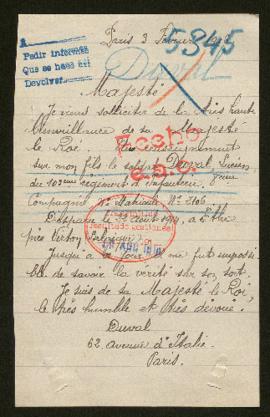 Paris 3 Février
5845
A
Pedir informes
Que se hace
Devolver
Duval
Majesté
Je viens solliciter de la très haute
bienveillance de sa Majesté
le Roi.
sur mon fils le soldat Duval Lucien
du 103ème régiment d'Infanterie, 8ème
Compagnie, Matricule Nº 2106
Disparu le 22 août 1914, à Ethe
près Virton Belgique
Jusqu'à ce jour il me fut impossi
ble de savoir la vérité sur son sort.
Je suis de sa Majesté le Roi,
le très humble et très dévoué.
Duval
62 avenue d'Italie.
Paris.